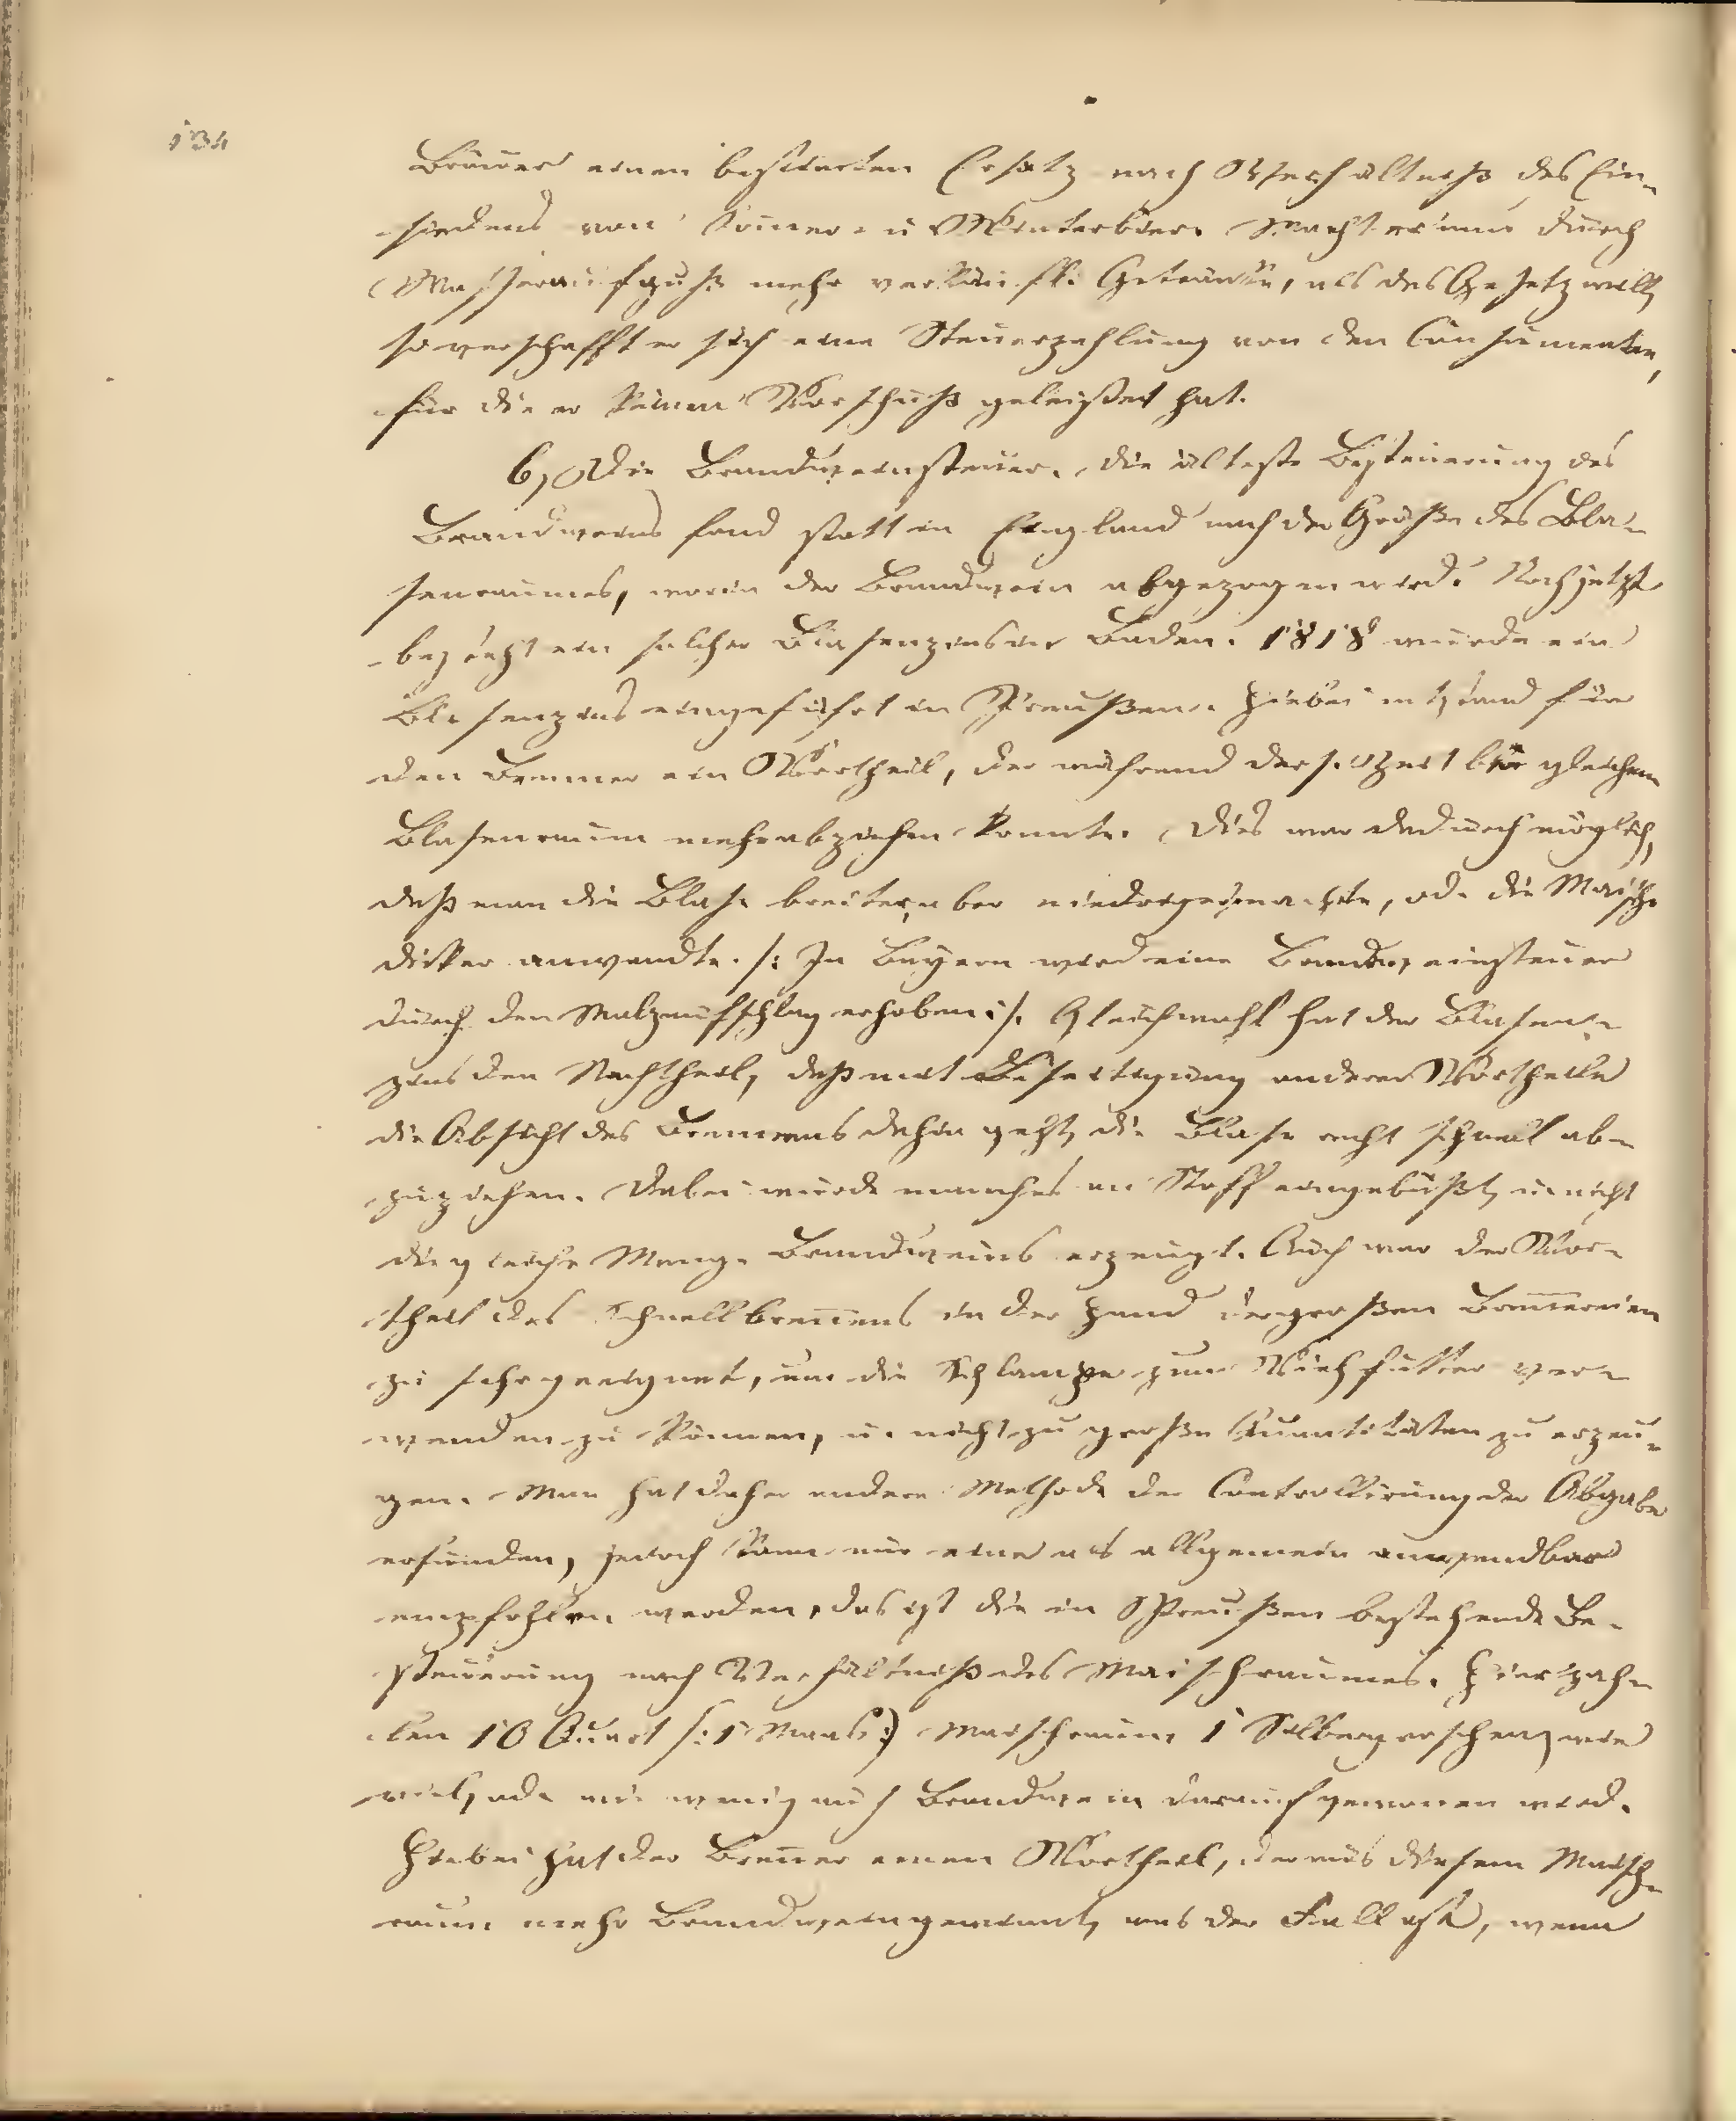 134
Bräuer einen bestimten Ersatz nach Verhältniß des Ein-
siedens von Somer- u Winterbier. Macht er nun durch
Wasseraufguß mehr verkäufl. Getränke, als das Gesetz will,
so verschafft er sich eine Steuerzahlung von den Consumenten,
für die er keinen Vorschuß geleistet hat.
6, Die Brandweinsteuer. Die älteste Besteuerung des
Brandweins fand statt in England nach der Größe des Bla-
senraumes, worin der Brandwein abgezogen wird. Noch jetzt
besteht ein solcher Blasenzins in Baden. 1818 wurde ein
Blasenzins eingeführt in Preußen. Hiebei entstand für
den Brenner ein Vortheil, der während ders. Zeit bei gleichem
Blasenraum mehr abziehen konnte. Dies war dadurch möglich,
daß man die Blase breiter, aber niedriger machte, od. die Maische
dicker anwendte. /: In Bayern wird eine Brandweinsteuer
durch den Malzaufschlag erhoben :/. Gleichwohl hat der Blasen-
zins den Nachtheil, daß mit Beseitigung anderer Vortheile
die Absicht des Brennens dahin geht, die Blase recht schnell ab-
zuziehen. Dabei wurde manches an Stoff eingebüßt, u. nicht
die gleiche Menge Brandweins erzeugt. Auch war der Vor-
theil des Schnellbreñens in der Hand der großen Breñereien
zu sehr geeignet, um die Schlampe zum Viehfutter ver-
wenden zu können, u. nicht zu große Quantitäten zu erzeu-
gen. Man hat daher andere Methode der Controllirung der Abgabe
erfunden, jedoch kann nur eine als allgemein anwendbar
empfohlen werden, das ist die in Preußen bestehende Be-
steuerung nach Verhältniß des Maischraumes. Hier zah-
len 10 Quart /: 1 Maas :) Maischraum 1 Silbergroschen, wie
viel, od. wie wenig auch Brandwein daraus gewonen wird.
Hiebei hat der Breñer einen Vortheil, der aus diesem Maisch-
raum mehr Brandwein gewinnt, was der Fall ist, wenn